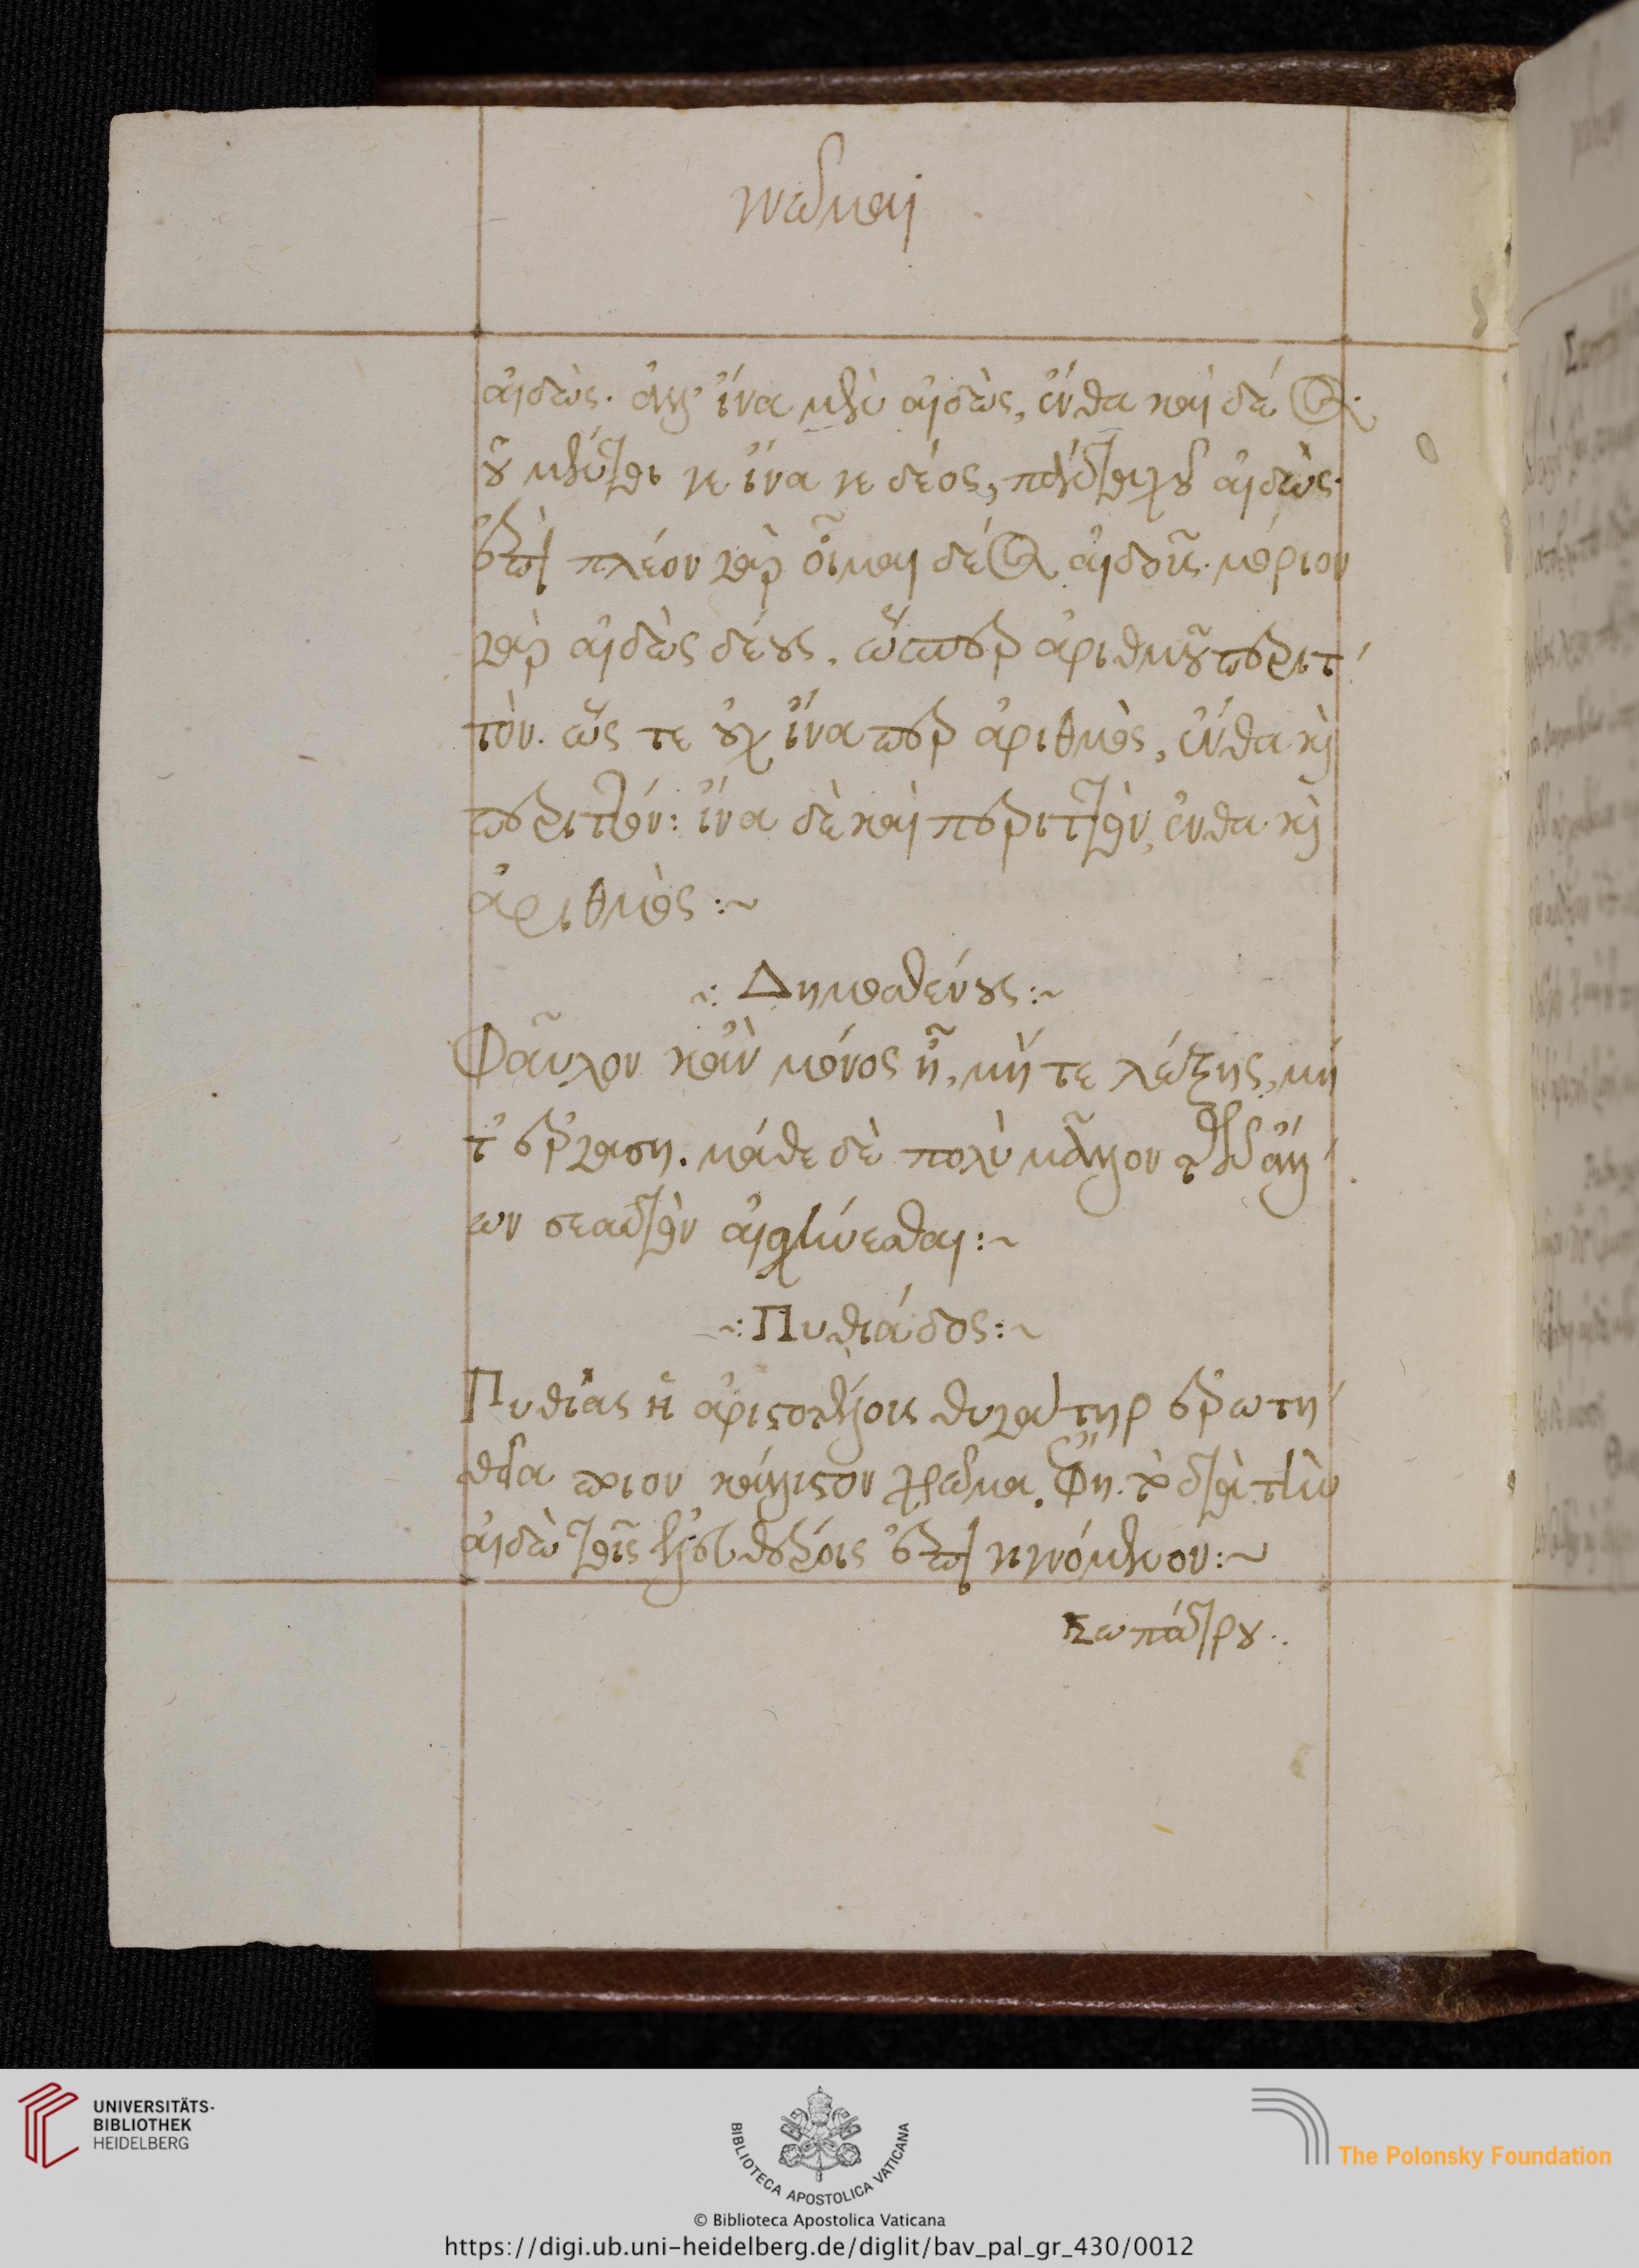 γνῶμαι
αἰδώς. ἀλλ' ἵνα μὲν αἰδώς, ἔνθα καὶ δέος.
οὐ μέντοι γε ἵνα γε δέος, πανταχοῦ αἰδώς.
ἐπὶ πλέον γὰρ οἶμαι δέος αἰδοῦς. μόριον
γὰρ αἰδὼς δέους. ὥσπερ ἀριθμοῦ περιτ
τόν. ὥς τε οὐχ ἵνα περ ἀριθμὸς, ἔνθα καὶ
περιττόν: ἵνα δὲ καὶ περιττὸν, ἔνθα καὶ
ἀριθμὸς:~
~: Δημοσθένους:~
Φαῦλον κἂν μόνος ᾖ, μή τε λέξης, μή
τ' ἐργάση. μάθε δὲ πολὺ μᾶλλον τῶν ἄλλ
ων σεαυτὸν αἰσχύνεσθαι:~
~: Πυθιάδος:~
Πυθιὰς ἡ ἀριστοτέλους θυγάτηρ ἐρωτη
θεῖσα ποῖον κάλλιστον χρῶμα. ἔφη. τὸ διὰ τὴν
αἰδῶ τοῖς ἐλευθέροις ἐπιγινόμενον:~
Σωπάτρου..
UNIVERSITÄTS-
BIBLIOTHEK
HEIDELBERG
BIBLIOTECA APOSTOLICA VATICANA
The Polonsky Foundation
© Biblioteca Apostolica Vaticana
https://digi.ub.uni-heidelberg.de/diglit/bav_pal_gr_430/0012